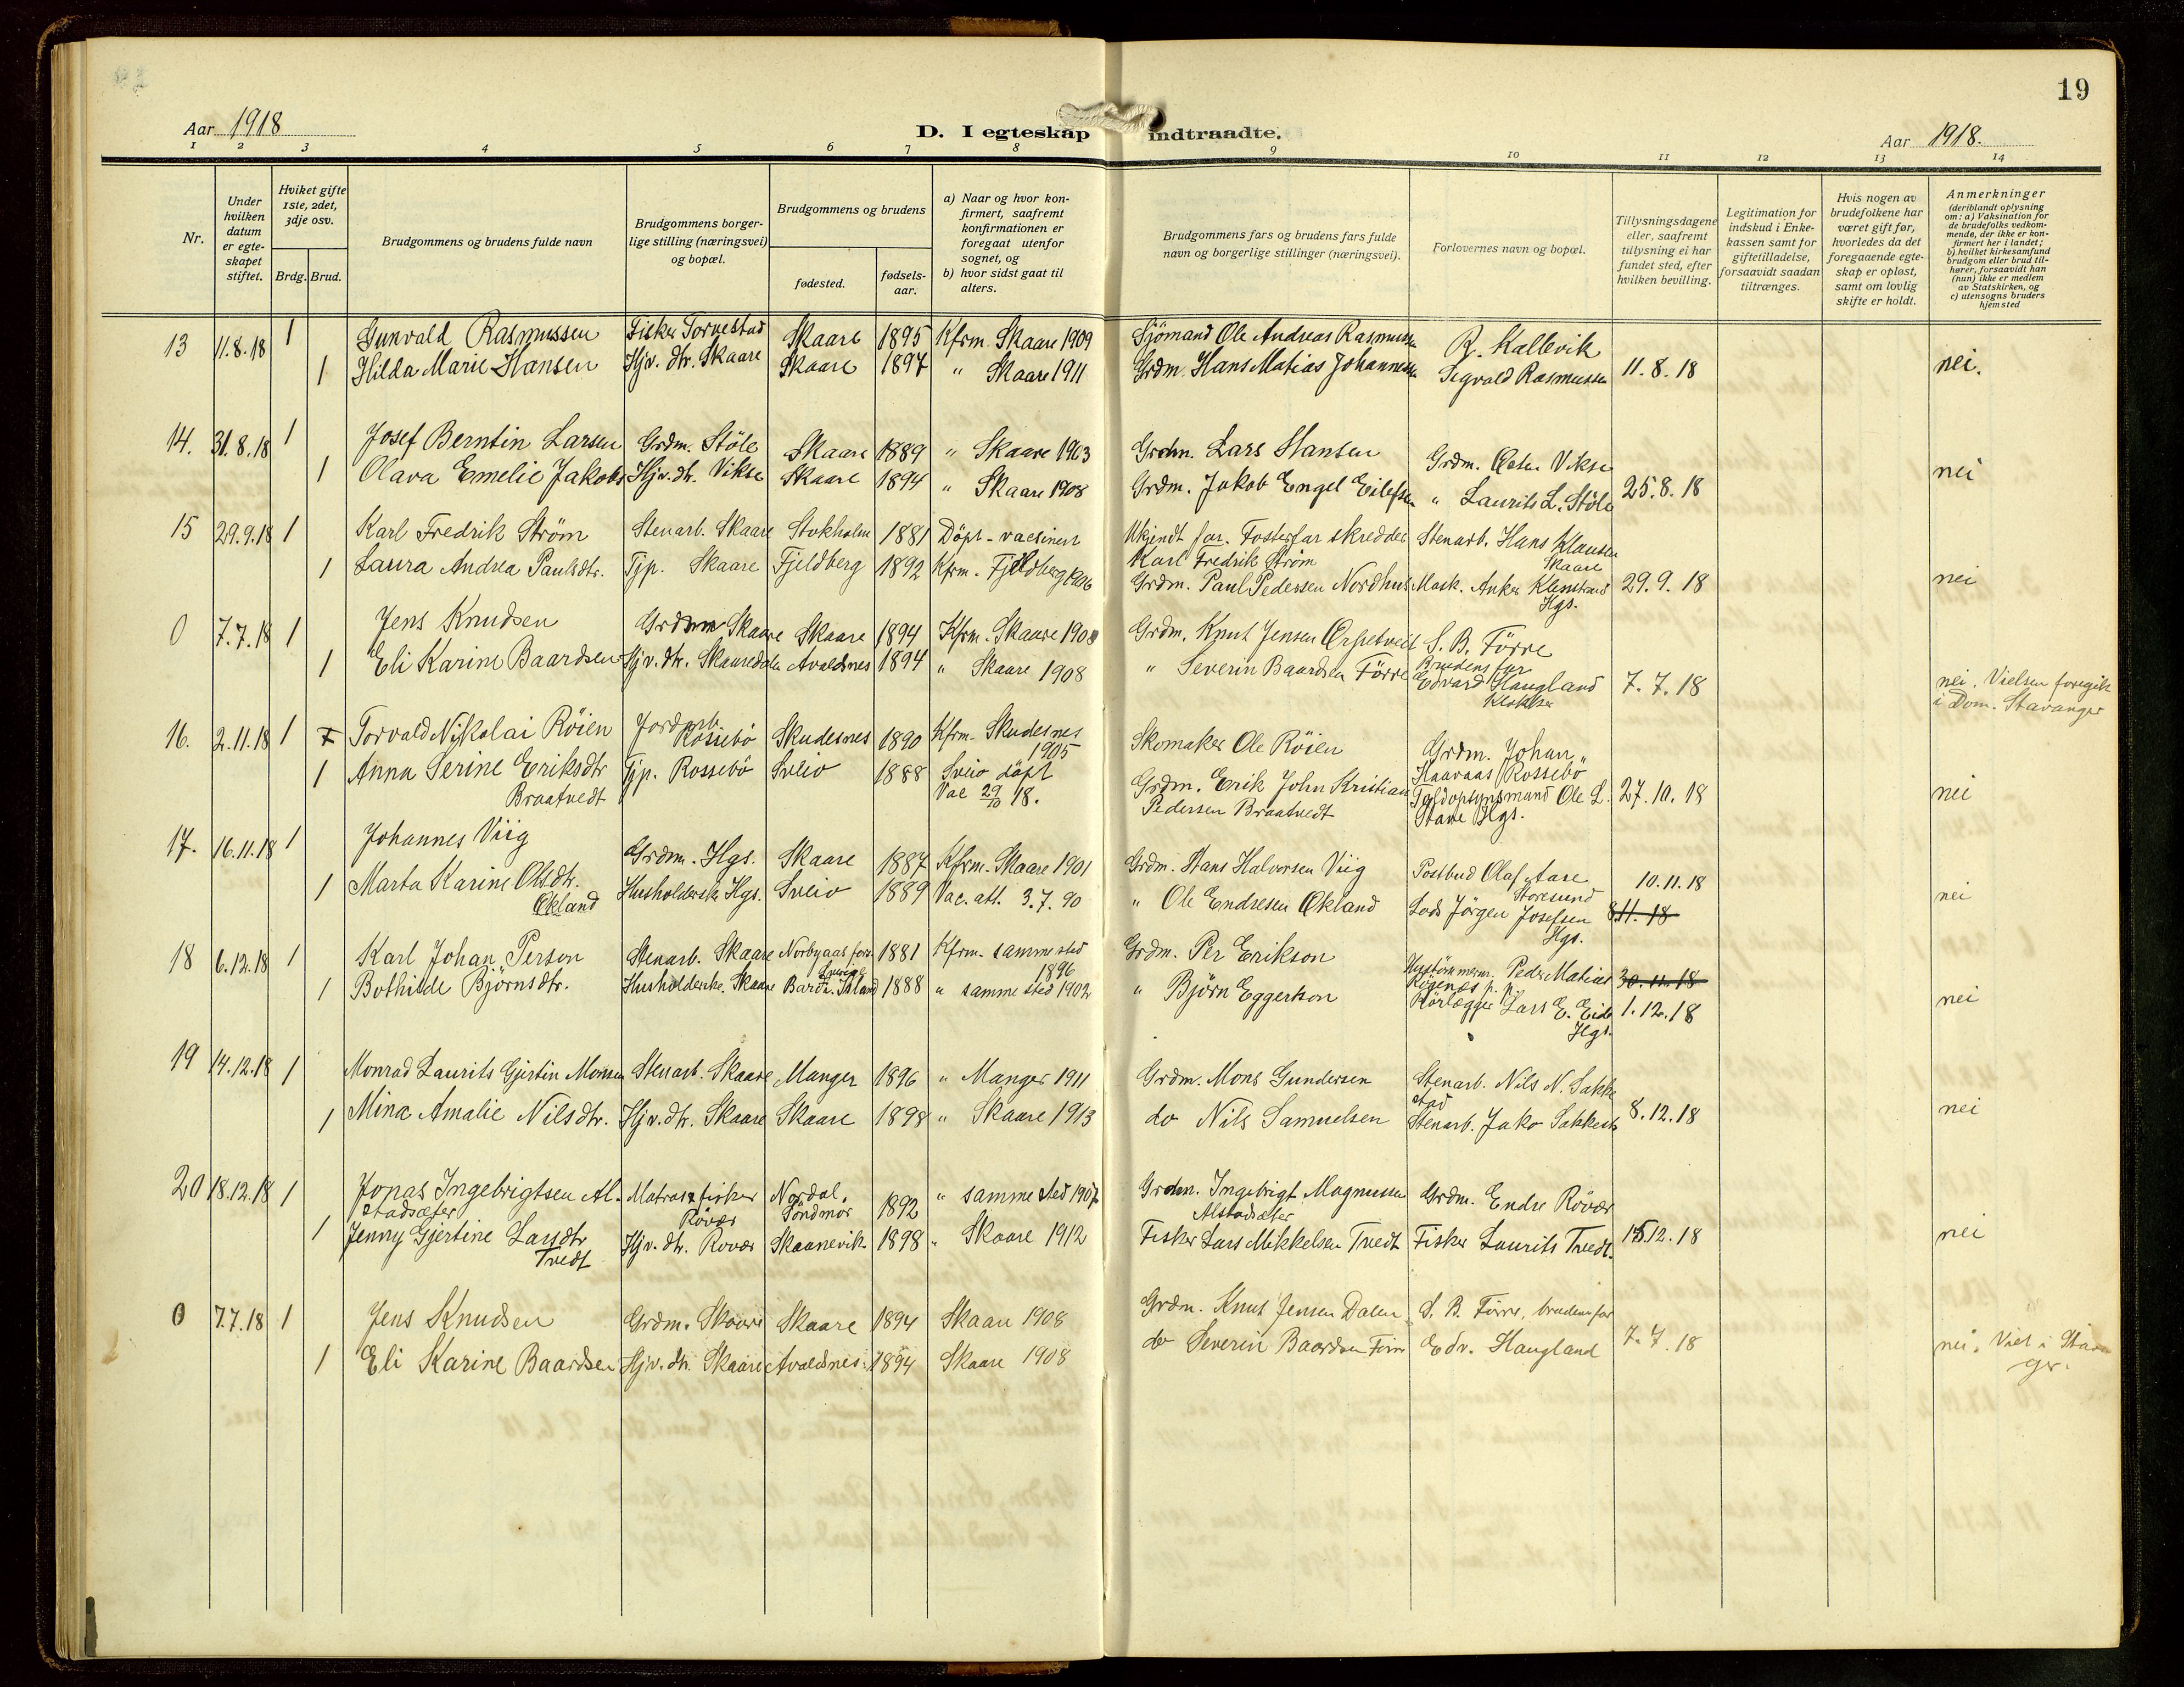 19
Aar 1918
D. I egteskap indtraadte.
Aar 1918.
1 2 3 4 5 6 7 8 9 10 11 12 13 14
Nr.
Under hvilken datum er egteskapet stiftet.
Hviket gifte 1ste, 2det, 3dje osv.
Brdg. Brud.
Brudgommens og brudens fulde navn
Brudgommens borgerlige stilling (næringsvei) og bopæl.
Brudgommens og brudens
fødested.
fødselsaar.
a) Naar og hvor konfirmert, saafremt konfirmationen er foregaat utenfor sognet, og
b) hvor sidst gaat til alters.
Brudgommens fars og brudens fars fulde navn og borgerlige stillinger (næringsvei).
Forlovernes navn og bopæl.
Tillysningsdagene eller, saafremt tillysning ei har fundet sted, efter hvilken bevilling.
Legitimation for indskud i Enkekassen samt for giftetilladelse, forsaavidt saadan tiltrænges.
Hvis nogen av brudefolkene har været gift før, hvorledes da det foregaaende egteskap er opløst, samt om lovlig skifte er holdt.
Anmerkninger (deriblandt oplysning om: a) Vaksination for de brudefolks vedkommende, der ikke er konfirmert her i landet; b) hvilket kirkesamfund brudgom eller brud tilhører, forsaavidt han (hun) ikke er medlem av Statskirken, og c) utensogns bruders hjemsted
13 11.8.18 1 Gunvald Rasmussen Fisker Torvestad Skaare 1895 Kfrm. Skaare 1909 Sjömand Ole Andreas Rasmussen R. Kallevik
1 Hilda Marie Hansen Hjv. dtr. Skaare Skaare 1897 " Skaare 1911 Grdm. Hans Matias Johannessen Segvald Rasmussen 11.8.18 nei.
14. 31.8.18 1 Josef Berntin Larsen Grdm. Stöle Skaare 1889 " Skaare 1903 Grdm. Lars Hansen Grdm. Vikse
1 Olava Emelie Jakobs Hjv. dtr. Vikse Skaare 1894 " Skaare 1908 Grdm. Jakob Engel Eilefsen " Laurits L. Stöle 25.8.18 nei
15 29.9.18 1 Karl Fredrik Ström Stenarb. Skaare Stokholm 1881 Döpt - vacsinert Ukjendt far. Fosterfar skredder Karl Fredrik Ström Stenarb. Hans Klausen Skaare
1 Laura Andrea Paulsdtr. Tjp. Skaare Fjeldberg 1892 Kfrm. Fjeldberg 1906 Grdm. Paul Pedersen Nordhus Mask. Anker Hgs. 29.9.18 nei
0 7.7.18 1 Jens Knudsen Grdm Skaare Skaare 1894 Kfrm. Skaare 1908 Grdm. Knut Jensen S. B. Förre Brudens far
1 Eli Karine Baardsen Hjv. dtr. Skaaredalen Avaldsnes 1894 " Skaare 1908 " Severin Baardsen Förre Edvard Haugland Klokker 7.7.18 nei. Vielsen foregik i Dom. Stavanger
16. 2.11.18 1 Torvald Nikolai Röien Jordarb. Rossebö Skudesnes 1890 Kfrm. Skudesnes 1905 Skomaker Ole Röien Grdm. Johan Haavaas Rossebö
1 Anna Serine Eriksdtr Braatvedt Tjp. Rossebö Sveio 1888 Sveio döpt Vac 29/10 18. Grdm. Erik John Kristian Pedersen Braatvedt Toldopsynsmand Ole L. Stave Hgs. 27.10.18 nei
17. 16.11.18 1 Johannes Viig Grdm. Hgs. Skaare 1887 Kfrm. Skaare 1901 Grdm. Hans Halvorsen Viig Postbud Olaf Aase Storesund 10.11.18
1 Marta Karine Olsdtr. Økland Husholderske Hgs. Sveio 1889 Vac. att. 3.7.90 " Ole Endresen Økland Lods Jörgen Josefsen Hgs. 8.11.18 nei
18 6.12.18 1 Karl Johan Person Stenarb. Skaare Norbyaas fors. Sverige 1881 Kfrm. samme sted 1896 Grdm. Per Erikson Peder Matias 30.11.18
1 Bothilde Björnsdtr. Husholderske. Skaare Bardr. Island 1888 " samme sted 1902 " Björn Eggertson Rörlægger Lars E. Eide Hgs. 1.12.18 nei
19 14.12.18 1 Monrad Laurits Gjertin Monsen Stenarb. Skaare Manger 1896 " Manger 1911 Grdm. Mons Gundersen Stenarb. Nils N. Sakkestad
1 Mina Amalie Nilsdtr. Hjv. dtr. Skaare Skaare 1898 " Skaare 1913 do Nils Samuelsen Stenarb. Jako Sakkest 8.12.18 nei
20 18.12.18 1 Jonas Ingebrigtsen Alstadsæter Matros & fisker Rövær Nordal. Söndmör 1892 " samme sted 1907 Grdm. Ingebrigt Magnussen Alstadsæter Grdm. Endre Rövær
1 Jenny Gjertine Larsdtr Tvedt Hjv. dtr. Rovær Skaanevik 1898 " Skaare 1912 Fisker Lars Mikkelsen Tvedt Fisker Laurits Tvedt. 15.12.18 nei
0 7.7.18 1 Jens Knudsen Grdm. Skaare Skaare 1894 Skaare 1908 Grdm. Knut Jensen Dalen S. B. Förre, brudens far
1 Eli Karine Baardsen Hjv. dtr. Skaare Avaldsnes. 1894 Skaare 1908 do Severin Baardsen Förre Edv. Haugland 7.7.18 nei. Viet i Stavanger.